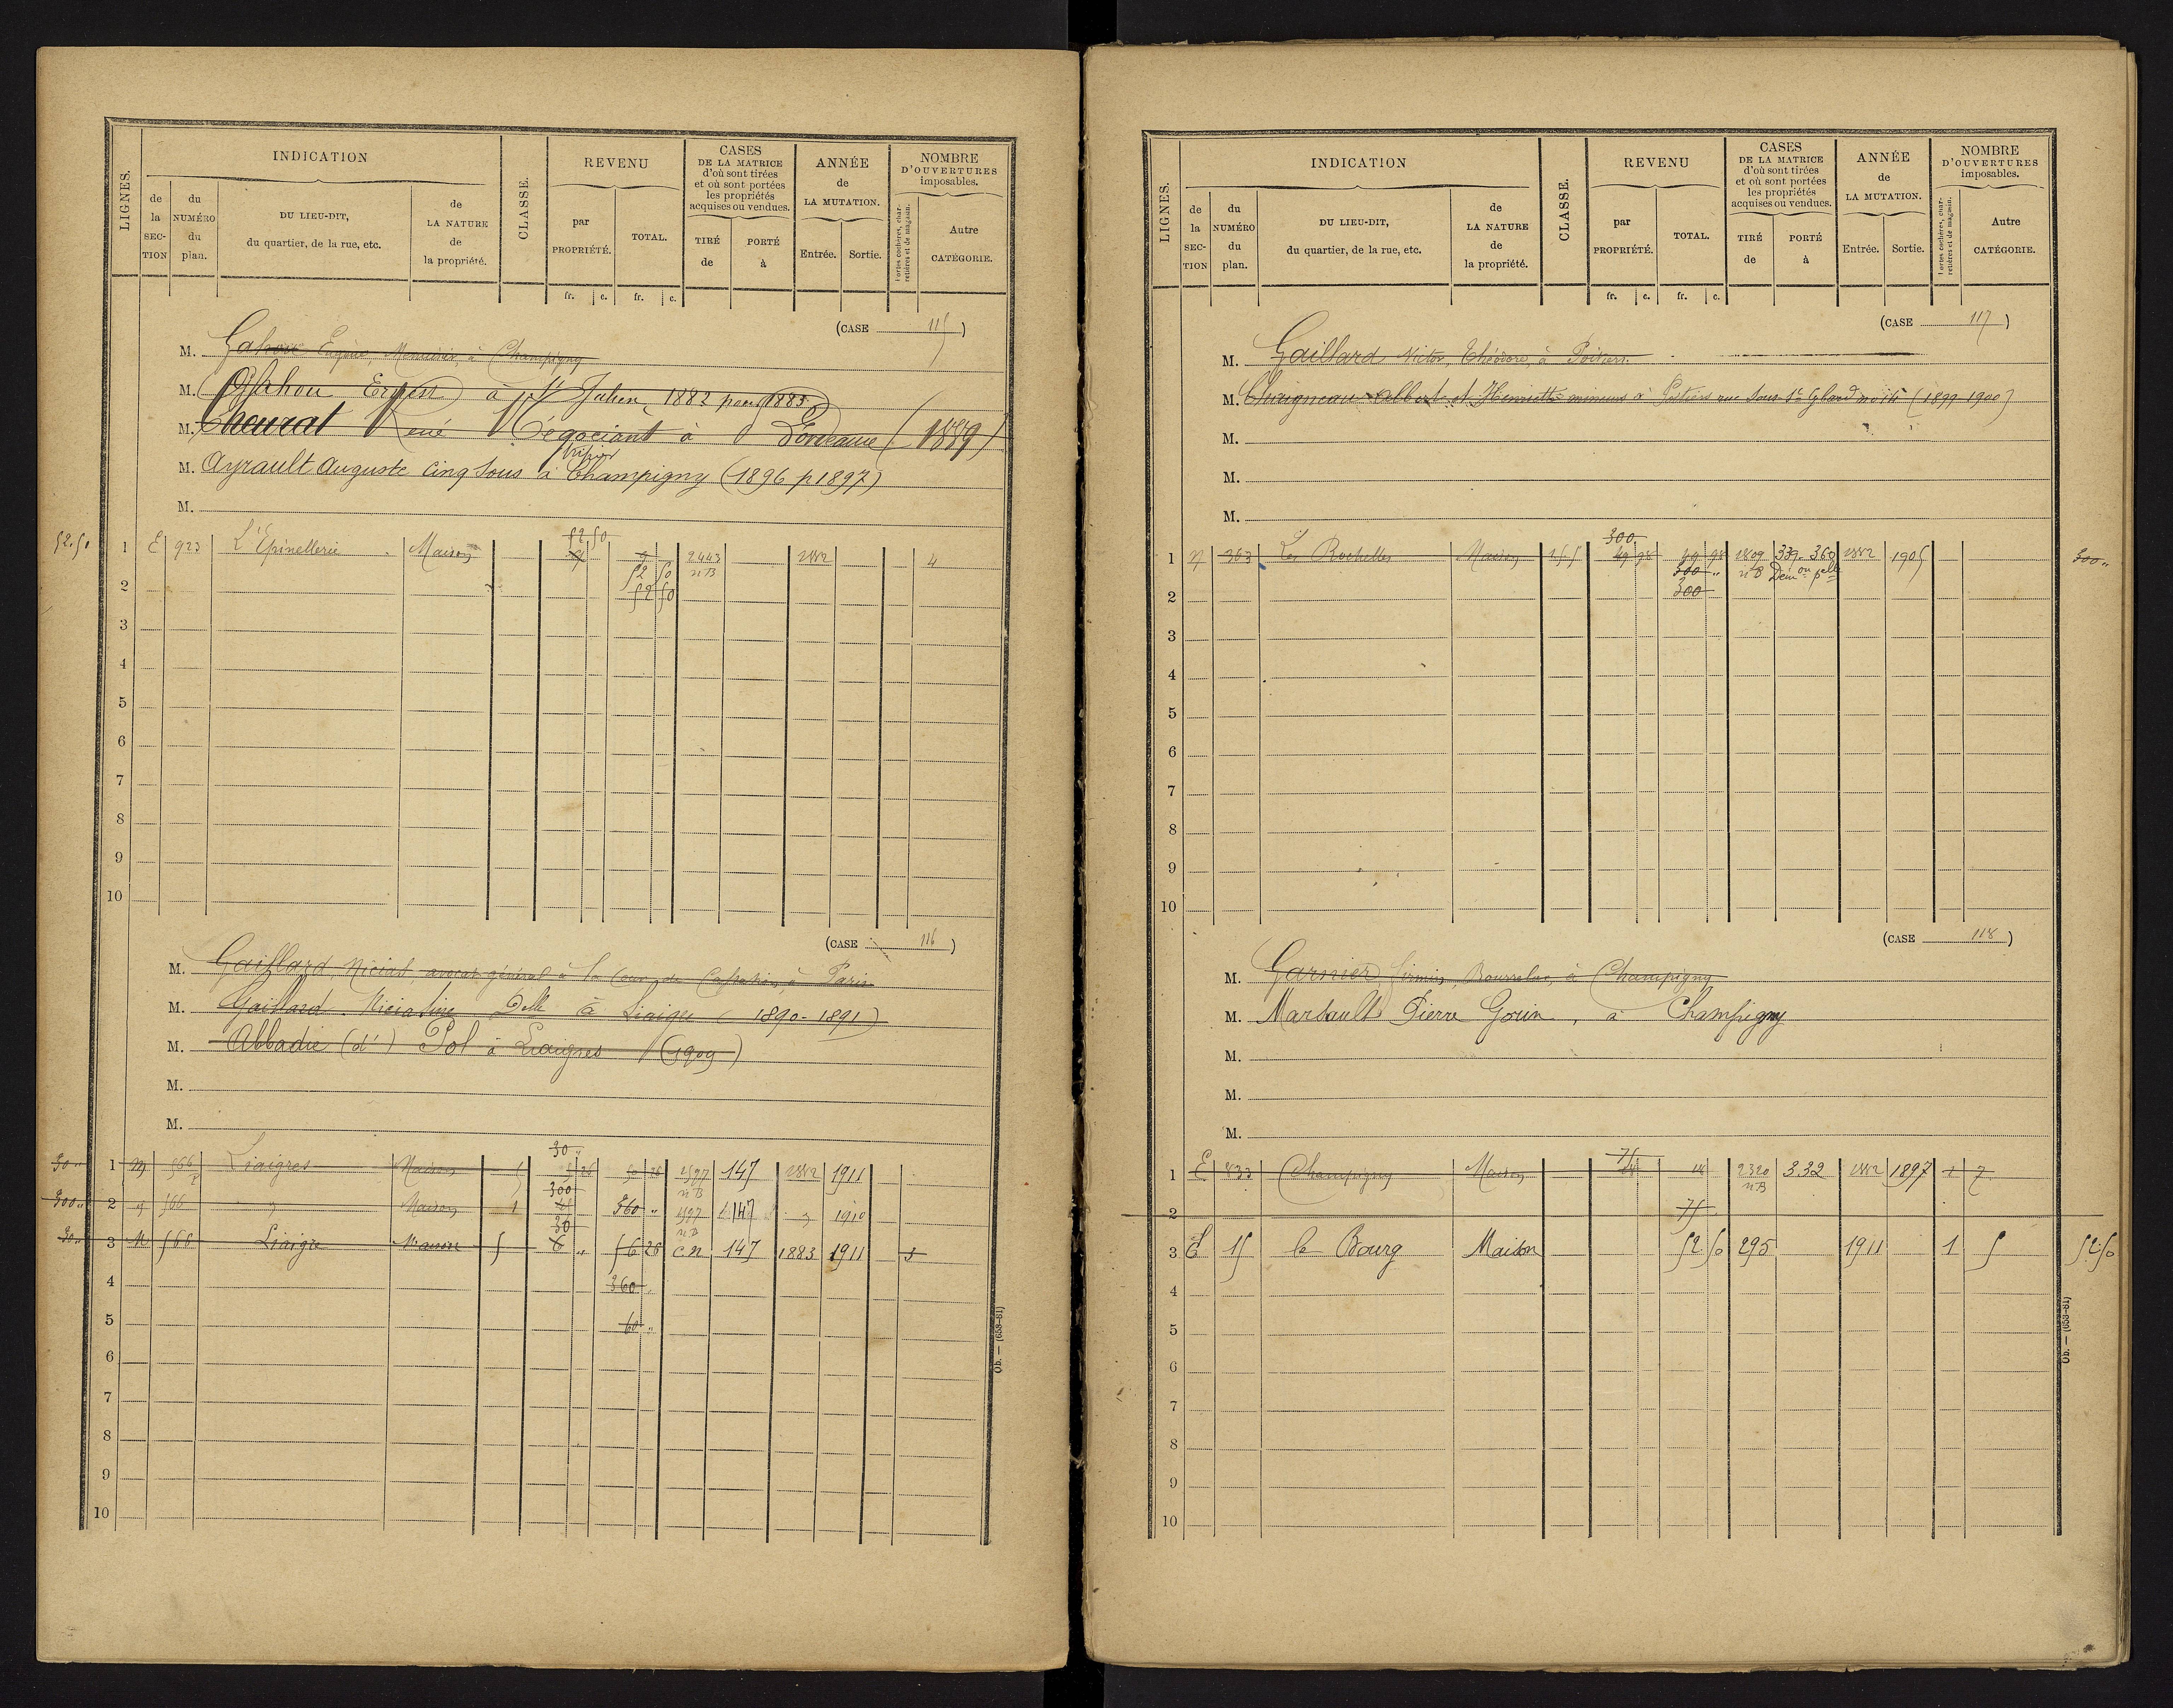 LIGNES.
INDICATION
CLASSE.
REVENU
CASES
DE LA MATRICE
d'où sont tirées
et où sont portées
les propriétés
acquises ou vendues.
ANNÉE
de
LA MUTATION.
NOMBRE
D'OUVERTURES
imposables.
de la SECTION
du NUMÉRO du plan.
DU LIEU-DIT,
du quartier, de la rue, etc.
de LA NATURE de la propriété.
par PROPRIÉTÉ.
TOTAL.
TIRÉ de
PORTÉ à
Entrée.
Sortie.
Portes cochères, charretières et de magasin.
Autre CATÉGORIE.
fr. c. fr. c.
(CASE 115)
M. Gahou Eugène, Menuisier, à Champigny
M. Gahou Ernest à St Julien 1882 pour 1883
M. Cheurat René Négociant à Bordeaux (1889)
M. Ayrault Auguste cinq sous à Champigny (1896 p 1897)
M.
52.50
52 50
1 E 923 L'Epinellerie Maison 9 9 2443 1882 4
52 50 n B
2 52 50
3
4
5
6
7
8
9
10
(CASE 116)
M. Gaillard Nicias, avocat général à la Cour de Cassation, à Paris
M. Gaillard Niciasine Delle à Liaigres (1890-1891)
M. Abbadie (d') Pol à Liaigres (1909)
M.
M.
30
30 " 1 M 566 p Liaigres Maison 5 26 50 26 1597 147 1882 1911
300 n B
300 " 2 " 566 " Maison 1 360 " 1597 147 " 1910
30 n B
30 " 3 M 566 Liaigre Maison 5 6 " 56 26 C N 147 1883 1911 5
4 360 "
5 60 "
6
7
8
9
10
Ob. — (653-81)
LIGNES.
INDICATION
CLASSE.
REVENU
CASES
DE LA MATRICE
d'où sont tirées
et où sont portées
les propriétés
acquises ou vendues.
ANNÉE
de
LA MUTATION.
NOMBRE
D'OUVERTURES
imposables.
de la SECTION
du NUMÉRO du plan.
DU LIEU-DIT,
du quartier, de la rue, etc.
de LA NATURE de la propriété.
par PROPRIÉTÉ.
TOTAL.
TIRÉ de
PORTÉ à
Entrée.
Sortie.
Portes cochères, charretières et de magasin.
Autre CATÉGORIE.
fr. c. fr. c.
(CASE 117)
M. Gaillard Victor, Théodore, à Poitiers
M. Chaigneau Albert et Henriette mineurs à Poitiers rue sous St (1899-1900)
M.
M.
M.
300
1 363 Les Rochelles Maison 49 98 49 98 1809 339-360 1882 1905 300 "
300 " n B Démon plle
2 300
3
4
5
6
7
8
9
10
(CASE 118)
M. Garnier Firmin, Bourrelier, à Champigny
M. Marsault Pierre Gorin, à Champigny
M.
M.
M.
75
1 E 833 Champigny Maison 18 18 2320 332 1882 1897 1 7
n B
2 75
3 E 15 le Bourg Maison 52.50 295 1911 1 5 52.50
4
5
6
7
8
9
10
Ob. — (653-81)